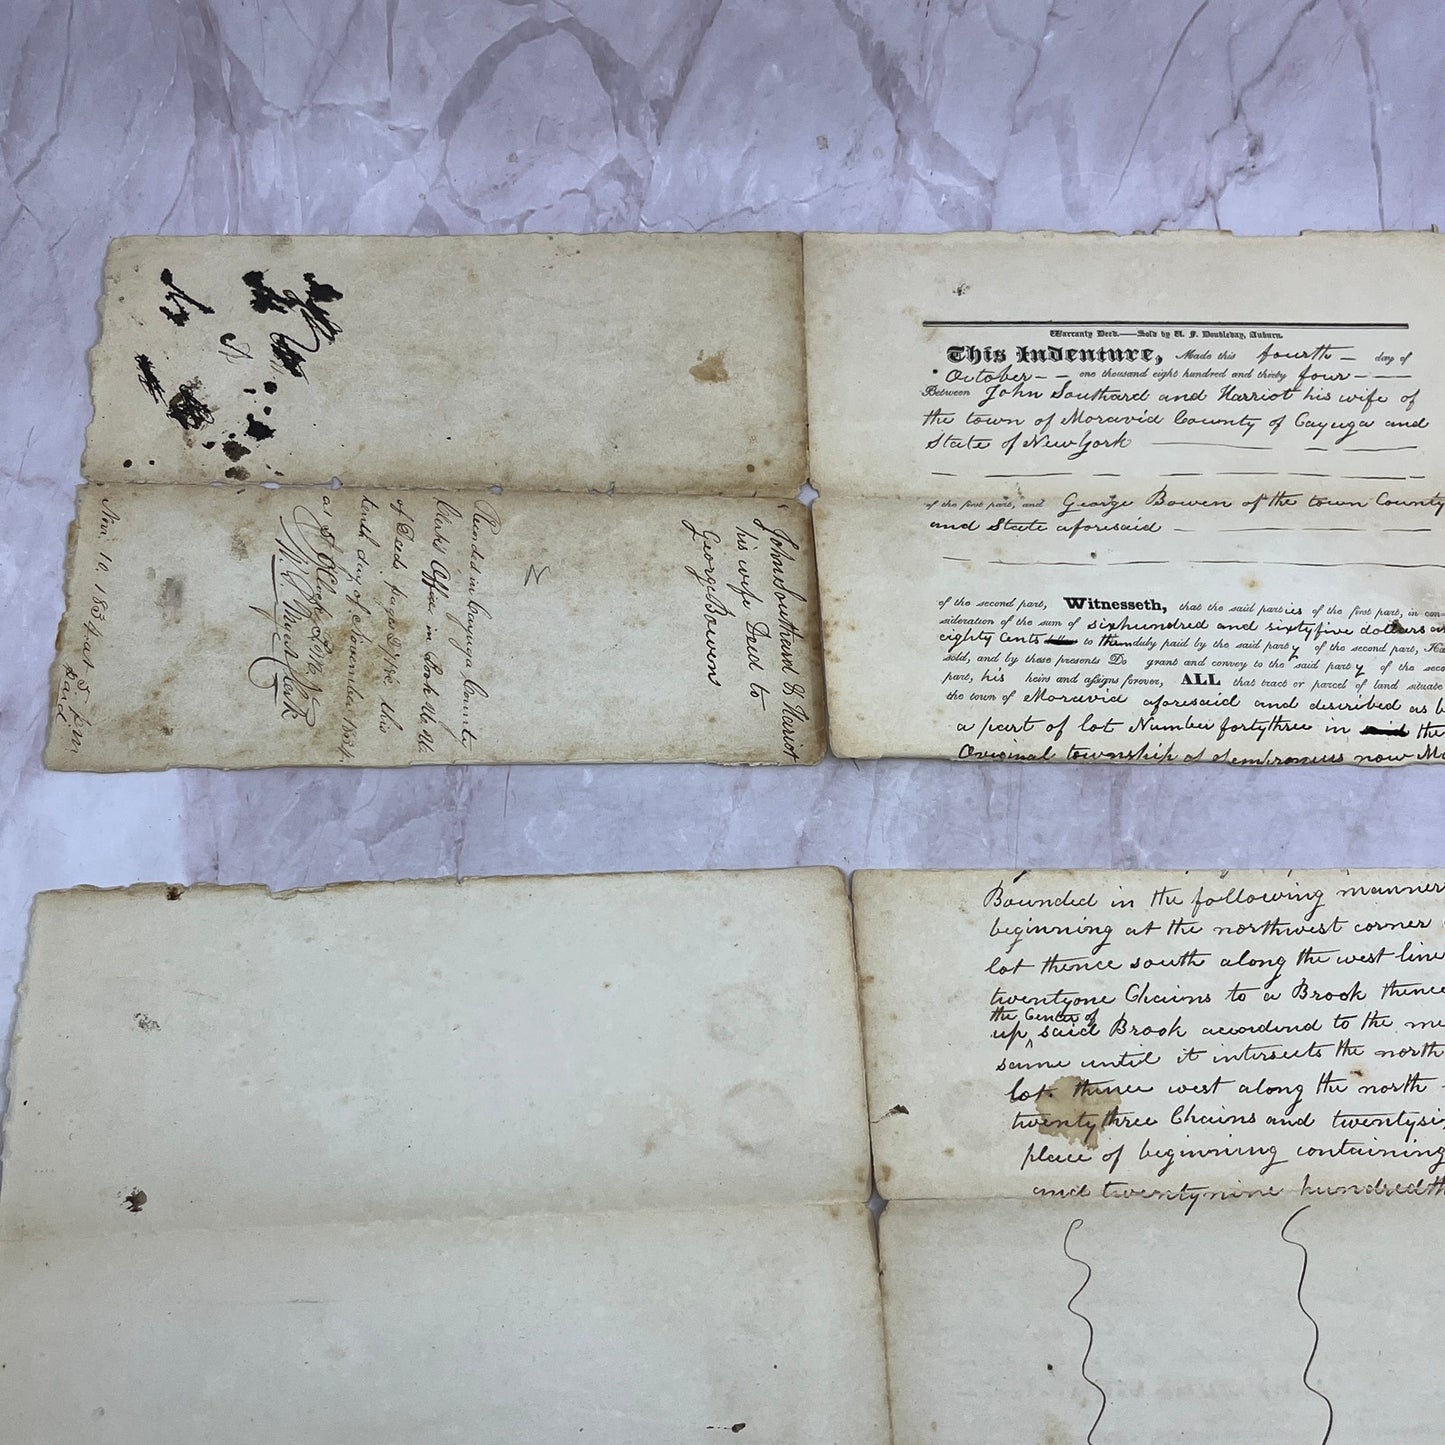 John Southard & Hariot
his wife Deed to
George Bowen
Recorded in Cayuga County
Clerks Office in Book
of Deeds page this
tenth day of November 1834.
at 5 Oclock P.M.
Clerk
Nov. 10. 1834. at 5 P.M
Paid
Warranty Deed.—Sold by U. F. Doubleday, Auburn.
This Indenture, Made this fourth — day of
October — — one thousand eight hundred and thirty four — —
Between John Southard and Harriot his wife of
the town of Moravia County of Cayuga and
State of New York
of the first part, and George Bowen of the town County
and State aforesaid
of the second part, Witnesseth, that the said parties of the first part, in con-
sideration of the sum of sixhundred and sixtyfive dollars
eighty Cents to them duly paid by the said party of the second part,
sold, and by these presents Do grant and convey to the said party of the
part, his heirs and assigns forever, ALL that tract or parcel of land situate
the town of Moravia aforesaid and discribed as
a part of lot Number fortythree in the
Original township of Sempronius now
Bounded in the following manner
beginning at the northwest corner
lot thence south along the west line
twentyone Chains to a Brook thence
the Center of
up said Brook the
same until it intersects the north
lot. thence west along the north
twentythree Chains and
place of beginning containing
and twentynine